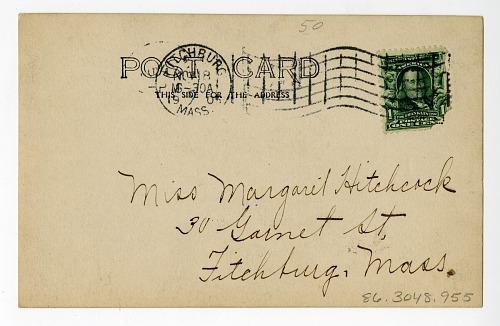 50
POST CARD
THIS SIDE FOR THE ADDRESS
FITCHBURG
NOV 8
MASS.
1
Miss Margaret Hitchcock
30 Garnet St,
Fitchburg, Mass.
86.3048.955